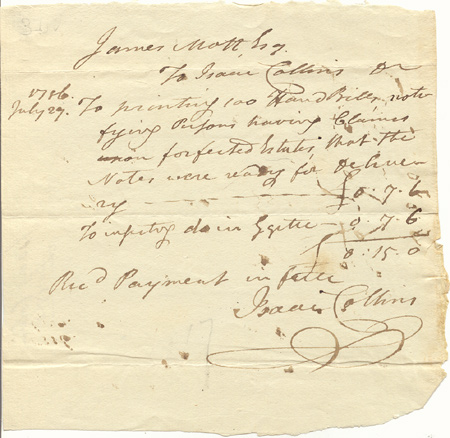 James Mott Esq.
To Isaac Collins Dr
1786.
July 29. To printing 100 Hand Bills, noti
fying Persons having Claims
upon forfeited Estates, that the
Notes were ready for Deliver
ry — £0.7.6
To inserting do in Gztte — 0.7.6
£0.15.0
Rec'd Payment in full
Isaac Collins